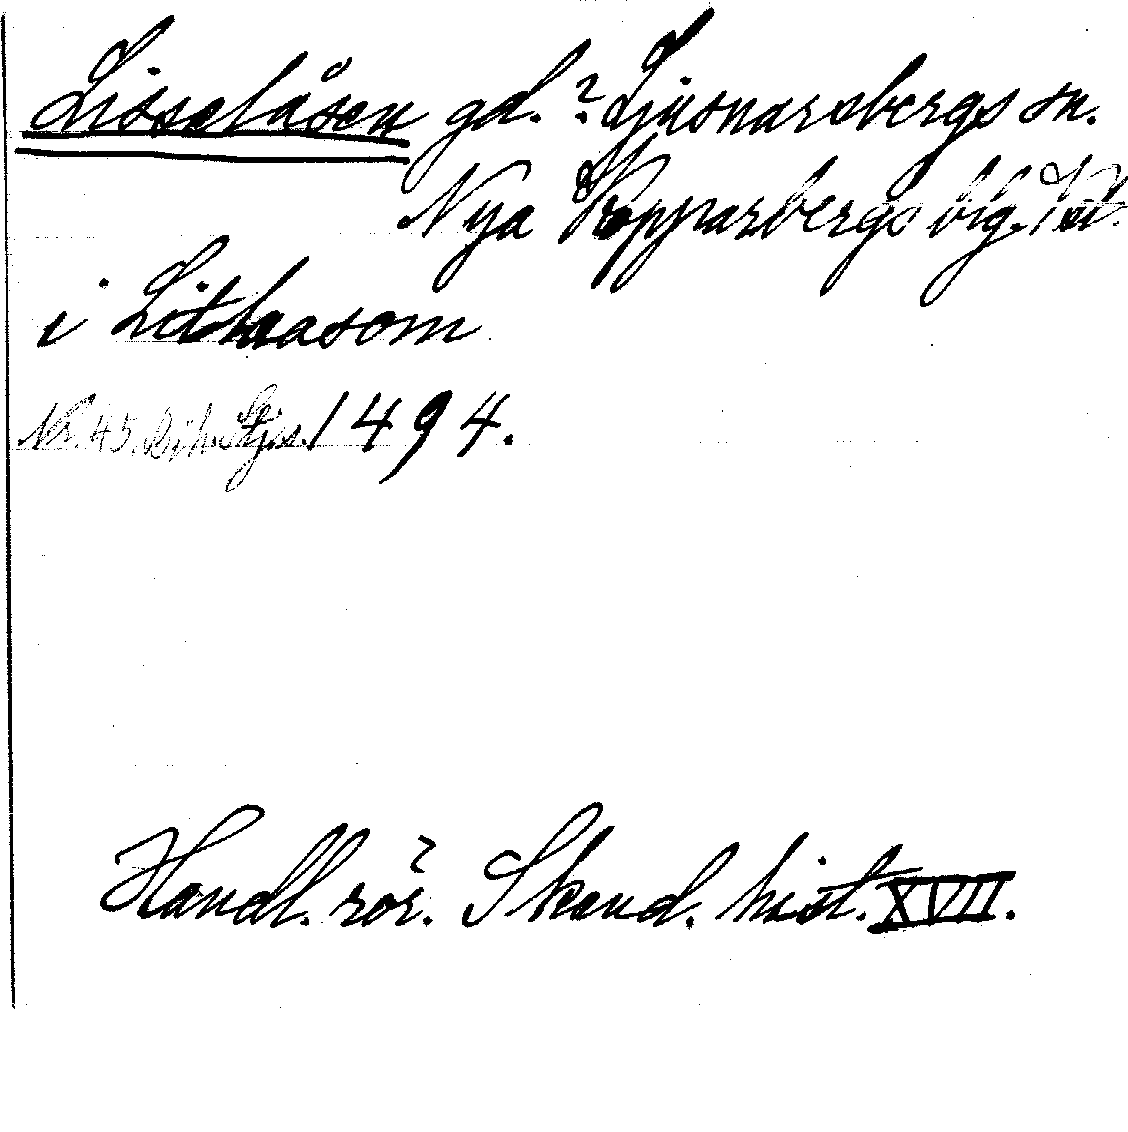 Lisselåsen gd.? Ljusnarsbergs sn.
Nya Kopparbergs blg. Vstm.
i Litlaasom
Nr. 45. Lih. Ljs. 1494.
Handl. rör. Skand. hist. XVII.